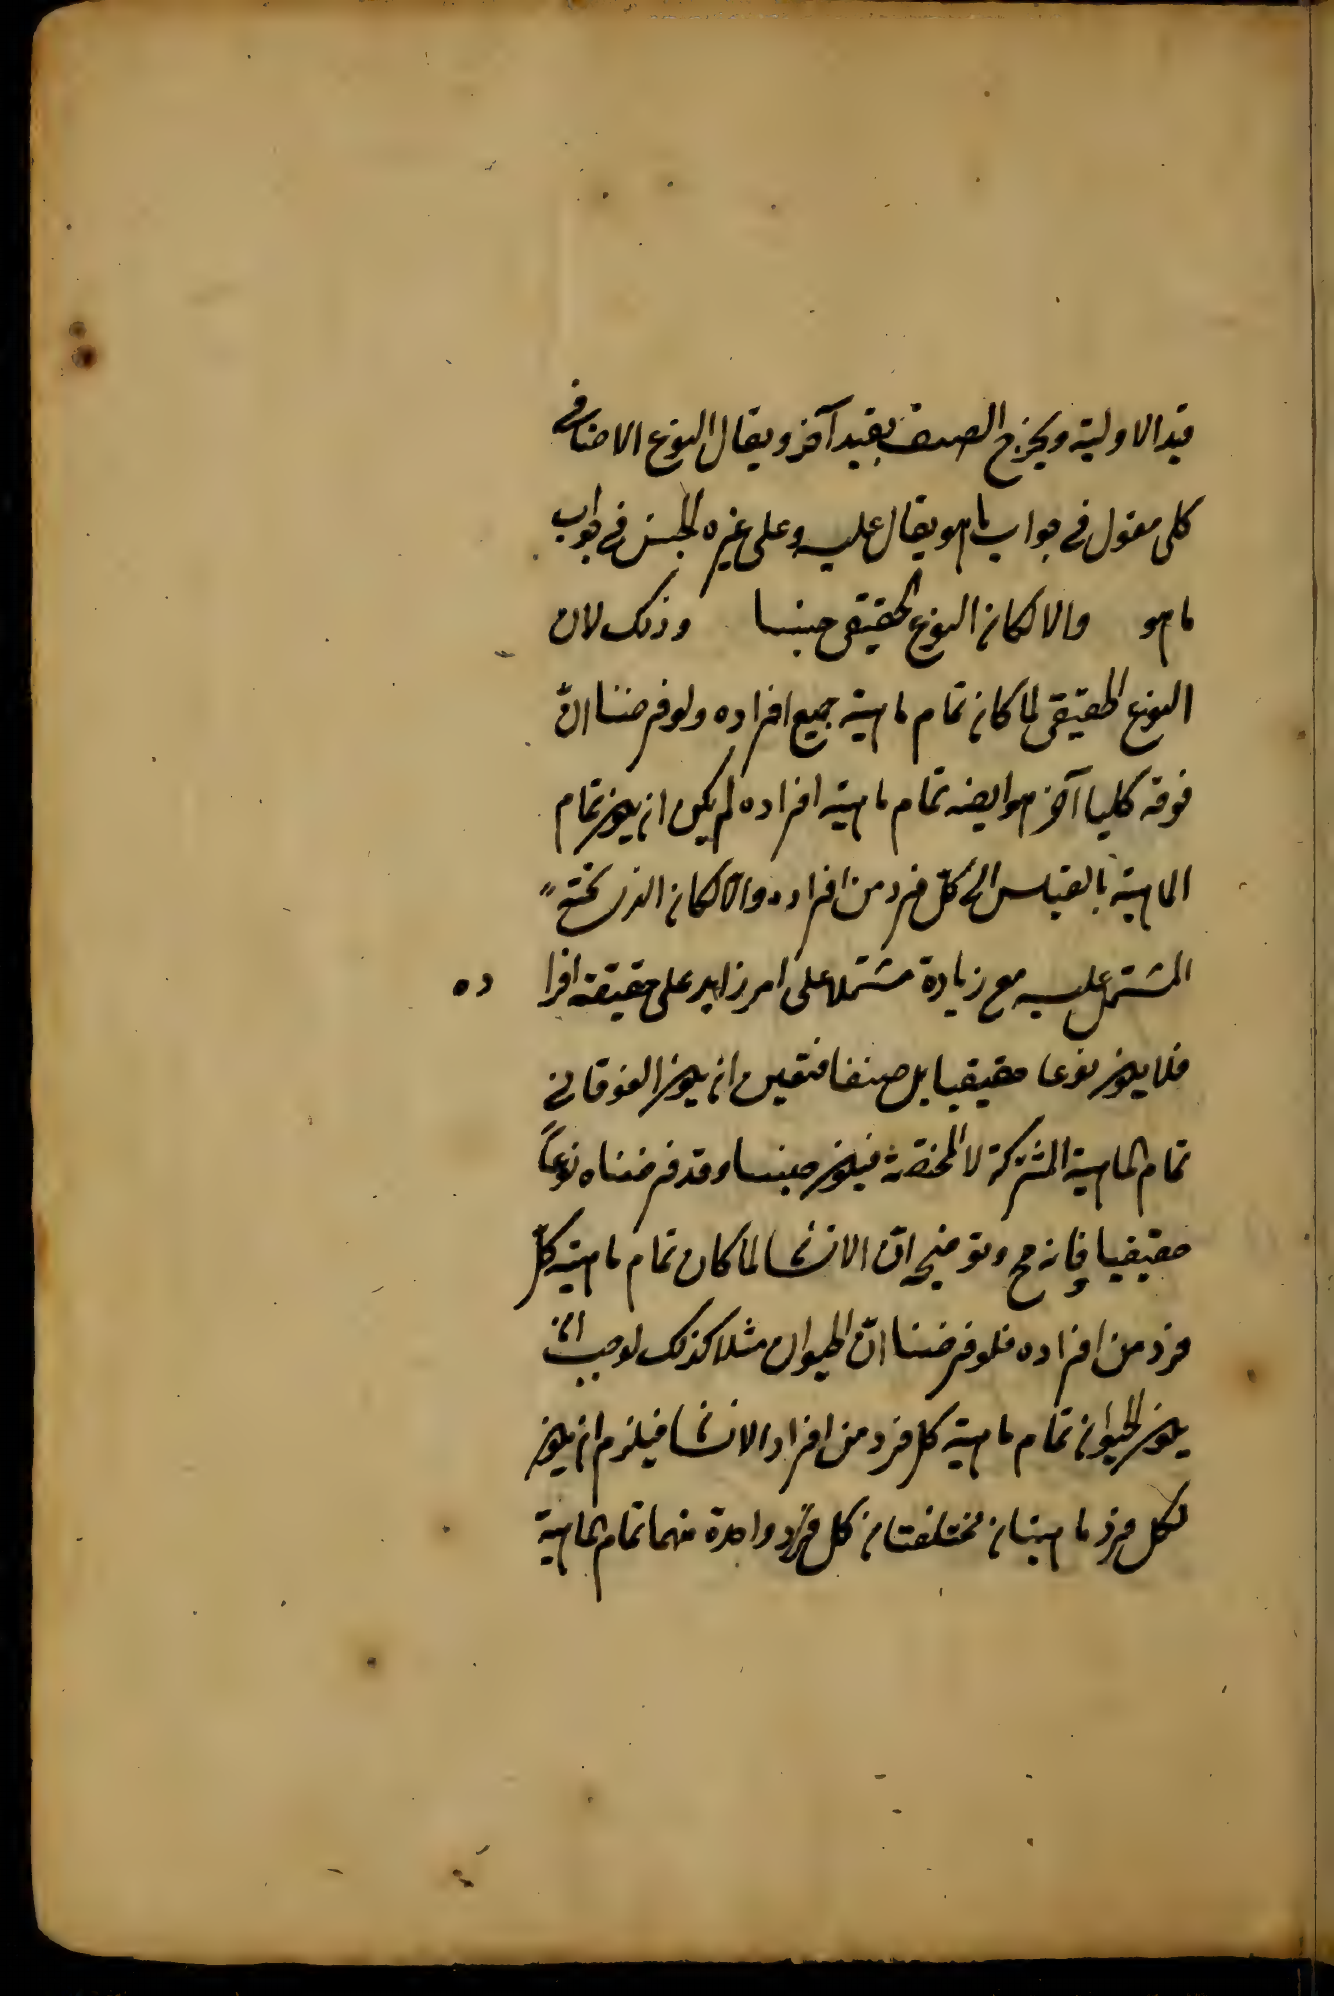 قيد الاولية ويخرج الصنف بقيد آخر ويقال النوع الاضافي
كلي مقول في جواب ما هو يقال عليه وعلى غيره الجنس في جواب
ما هو والا لكان النوع الحقيقي جنسا وذلك لان
النوع الحقيقي لما كان تمام ماهية جميع افراده ولو فرضنا انّ
فوقه كليا آخر هو ايضا تمام ماهية افراده لم يكن ان يكون تمام
الماهية بالقياس الى كلّ فرد من افراده والّا لكان الذي تحته
المشتمل عليه مع زيادة مشتملا على امر زايد على حقيقة افراده
فلا يكون نوعا حقيقيا بل صنفا فتعين ان يكون الفوقاني
تمام الماهية المشتركة لا المختصة فيكون جنسا وقد فرضناه نوعاً
حقيقيا فانه مح وتوضيحه انّ الانسان لما كان تمام ماهية كلّ
فرد من افراده فلو فرضنا انّ الحيوان مثلا كذلك لوجب ان
يكون الحيوان تمام ماهية كل فرد من افراد الانسان فيلزم ان يكون
لكل فرد ماهيتان مختلفتان كل فرد واحدة منهما تمام الماهية